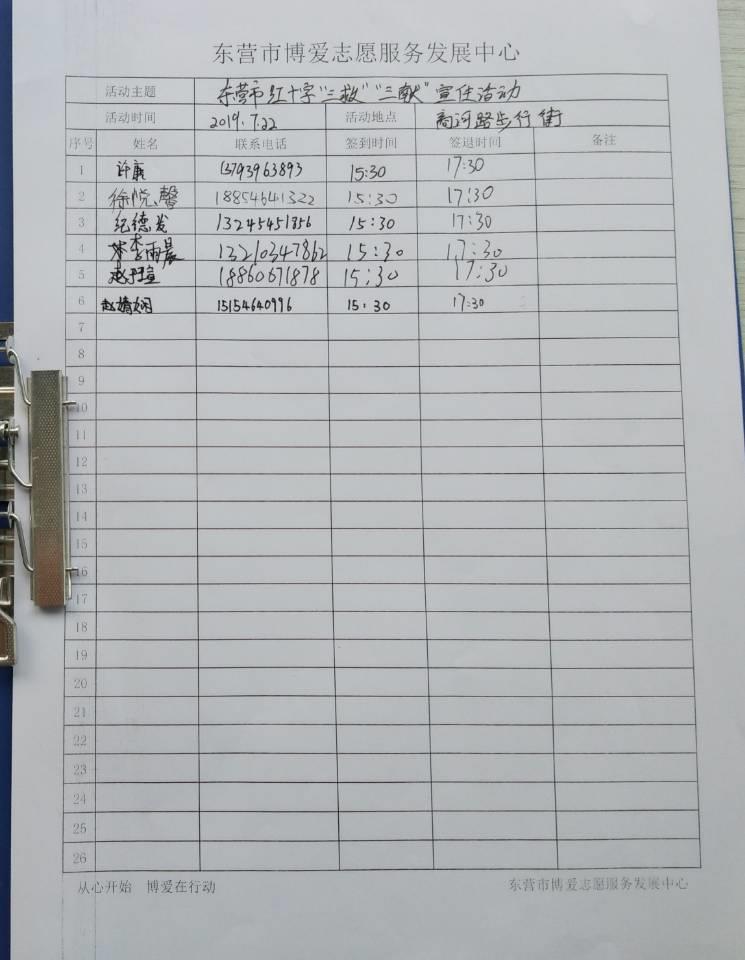 东营市博爱志愿服务发展中心
活动主题 东营市红十字"三救""三献"宣传活动
活动时间 2019.7.22 活动地点 商河路步行街
序号 姓名 联系电话 签到时间 签退时间 备注
1 许康 13793963893 15:30 17:30
2 徐悦馨 18854641322 15:30 17:30
3 纪德发 13245451856 15:30 17:30
4 李雨晨 13210347862 15:30 17:30
5 18860671878 15:30 17:30
6 15154640996 15:30 17:30
7
8
9
10
11
12
13
14
15
16
17
18
19
20
21
22
23
24
25
26
从心开始 博爱在行动 东营市博爱志愿服务发展中心